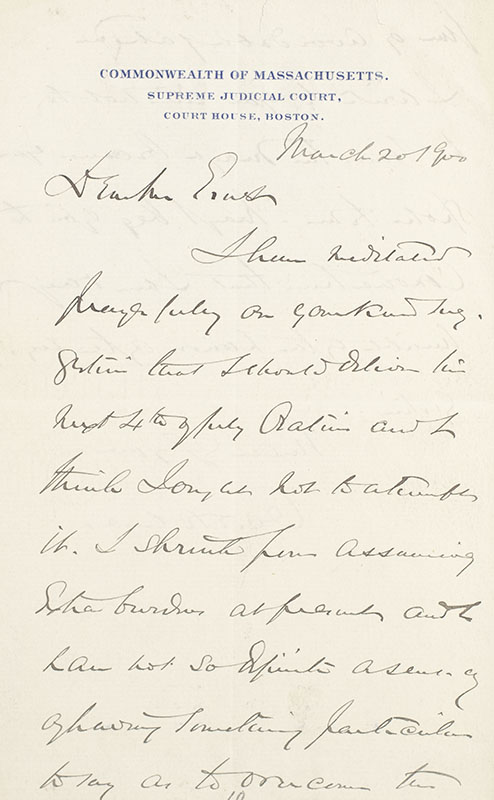 COMMONWEALTH OF MASSACHUSETTS.
SUPREME JUDICIAL COURT,
COURT HOUSE, BOSTON.
March 20 1900
Dear Mr
I have meditated
prayerfully on your kind sug-
gestion that I should deliver the
next 4th of July Oration and I
think I ought not to attempt
it. I shrink from assuming
extra burdens at present and I
have not so definite a sense
of having something particular
to say as to overcome the